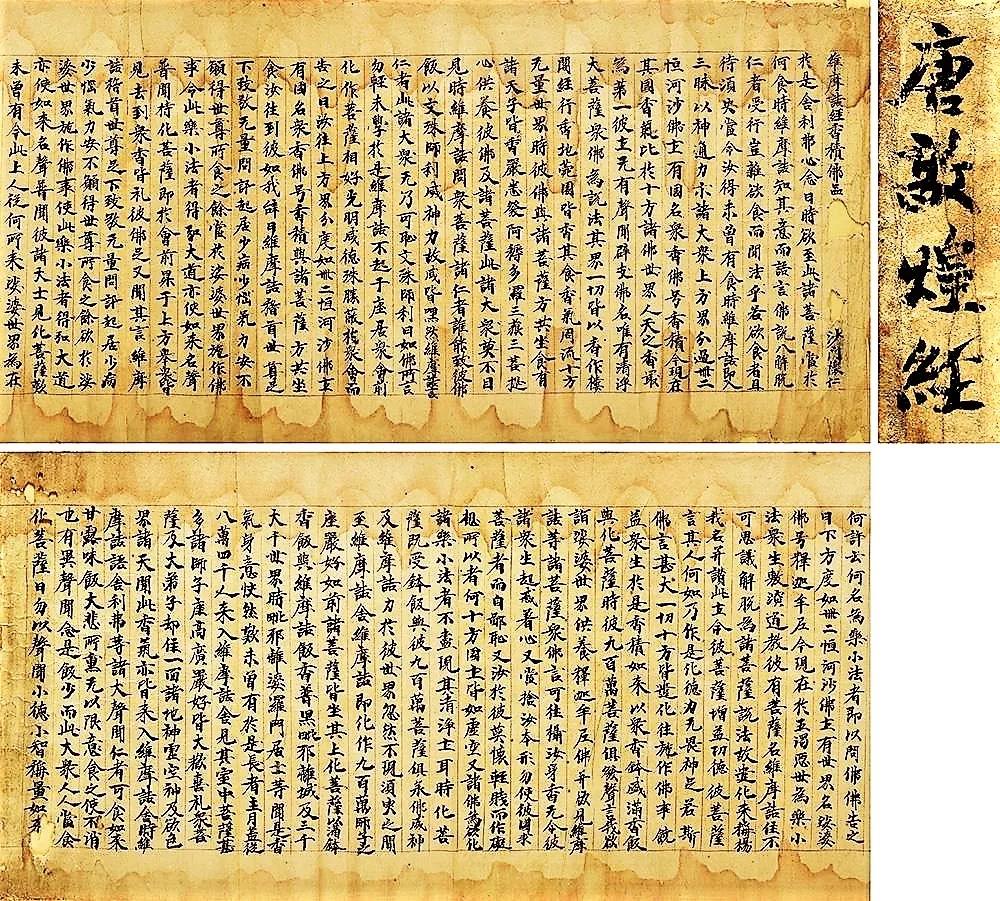 維摩詰經香積佛品 沙門懷仁
於是舍利弗心念日時欲至此諸菩薩當於
何食時維摩詰知其意而語言佛說八解脫
仁者受行豈雜欲食而聞法乎若欲食者且
待須臾當令汝得未曾有食時維摩詰即入
三昧以神通力示諸大衆上方界分過卌二
恒河沙佛土有國名衆香佛号香積今現在
其國香氣比於十方諸佛世界人天之香最
為第一彼土无有聲聞辟支佛名唯有清淨
大菩薩衆佛為說法其界一切皆以香作樓
閣經行香地苑園皆香其食香氣周流十方
无量世界時彼佛與諸菩薩方共坐食有
諸天子皆号香嚴悉發阿耨多羅三藐三菩提
心供養彼佛及諸菩薩此諸大衆莫不目
見時維摩詰問衆菩薩諸仁者誰能致彼佛
飯以文殊師利威神力故咸皆嘿然維摩詰言
仁者此諸大衆无乃可恥文殊師利曰如佛所言
勿輕未學於是維摩詰不起于座居衆會前
化作菩薩相好光明威德殊勝蔽於衆會而
告之曰汝往上方界分度如卌二恒河沙佛土
有國名衆香佛号香積與諸菩薩方共坐
食汝往到彼如我辞曰維摩詰稽首世尊足
下致敬无量問訊起居少病少惱氣力安不
願得世尊所食之餘當於娑婆世界施作佛
事令此樂小法者得弘大道亦使如來名聲
普聞時化菩薩即於會前昇于上方衆會皆
見去到衆香界礼彼佛足又聞其言維摩
詰稽首世尊足下致敬无量問訊起居少病
少惱氣力安不願得世尊所食之餘欲於娑
婆世界施作佛事使此樂小法者得弘大道
亦使如來名聲普聞彼諸大士見化菩薩歎
未曾有今此上人從何所來娑婆世界為在
唐敦煌經
何許云何名為樂小法者即以問佛佛告之
曰下方度如卌二恒河沙佛土有世界名娑婆
佛号釋迦牟尼今現在於五濁惡世為樂小
法衆生敷演道教彼有菩薩名維摩詰住不
可思議解脫為諸菩薩說法故遣化來稱揚
我名并讚此土令彼菩薩增益功德彼菩薩
言其人何如乃作是化德力无畏神足若斯
佛言甚大一切十方皆遣化往施作佛事饒
益衆生於是香積如來以衆香鉢盛滿香飯
與化菩薩時彼九百萬菩薩俱發聲言我欲
詣娑婆世界供養釋迦牟尼佛并欲見維摩
詰等諸菩薩衆佛言可往攝汝身香无令彼
諸衆生起惑著心又當捨汝本形勿使彼國求
菩薩者而自鄙恥又汝於彼莫懷輕賤而作礙
想所以者何十方國土皆如虛空又諸佛為欲化
諸樂小法者不盡現其清淨土耳時化菩
薩既受鉢飯與彼九百萬菩薩俱承佛威神
及維摩詰力於彼世界忽然不現須臾之間
至維摩詰舍維摩詰即化作九百萬師子之
座嚴好如前諸菩薩皆坐其上化菩薩滿鉢
香飯與維摩詰飯香普熏毗耶離城及三千
大千世界時毗耶離婆羅門居士等聞是香
氣身意快然歎未曾有於是長者主月蓋從
八萬四千人來入維摩詰舍見其室中菩薩甚
多諸師子座高廣嚴好皆大歡喜礼衆菩
薩及大弟子却住一面諸地神虛空神及欲色
界諸天聞此香氣亦皆來入維摩詰舍時維
摩詰語舍利弗等諸大聲聞仁者可食如來
甘露味飯大悲所熏无以限意食之使不消
也有異聲聞念是飯少而此大衆人人當食
化菩薩曰勿以聲聞小德小智稱量如來